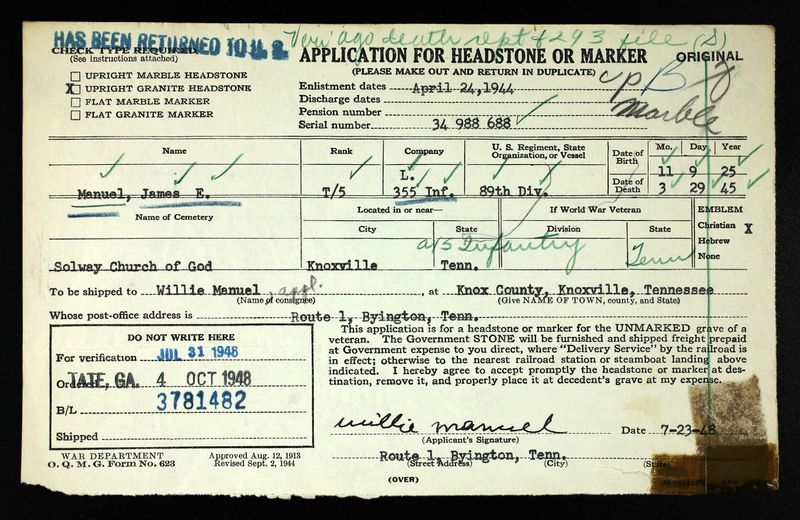 HAS BEEN RETURNED TO U.S.
Veri ago death rept & 293 file (S)
CHECK TYPE REQUIRED
(See instructions attached)
UPRIGHT MARBLE HEADSTONE
X UPRIGHT GRANITE HEADSTONE
FLAT MARBLE MARKER
FLAT GRANITE MARKER
APPLICATION FOR HEADSTONE OR MARKER
(PLEASE MAKE OUT AND RETURN IN DUPLICATE)
ORIGINAL
Enlistment dates April 24,1944
Discharge dates
Pension number
Serial number 34 988 688
up B
Marble
Name Rank Company U. S. Regiment, State Organization, or Vessel Date of Birth Mo. Day Year
11 9 25
Date of Death 3 29 45
L.
Manuel, James E. T/5 355 Inf. 89th Div.
Name of Cemetery Located in or near— If World War Veteran EMBLEM
City State Division State
Christian X
Hebrew
None
a/5 Infantry Tenn
Solway Church of God Knoxville Tenn.
To be shipped to Willie Manuel, appl. at Knox County, Knoxville, Tennessee
(Name of consignee) (Give NAME OF TOWN, county, and State)
Whose post-office address is Route 1, Byington, Tenn.
DO NOT WRITE HERE
For verification JUL 31 1948
Ordered TATE, GA. 4 OCT 1948
B/L 3781482
Shipped
This application is for a headstone or marker for the UNMARKED grave of a
veteran. The Government STONE will be furnished and shipped freight prepaid
at Government expense to you direct, where "Delivery Service" by the railroad is
in effect; otherwise to the nearest railroad station or steamboat landing above
indicated. I hereby agree to accept promptly the headstone or marker at des-
tination, remove it, and properly place it at decedent's grave at my expense.
Willie Manuel Date 7-23-48
(Applicant's Signature)
Route 1, Byington, Tenn.
(Street Address) (City) (State)
WAR DEPARTMENT
O. Q. M. G. Form No. 623
Approved Aug. 12, 1913
Revised Sept. 2, 1944
(OVER)